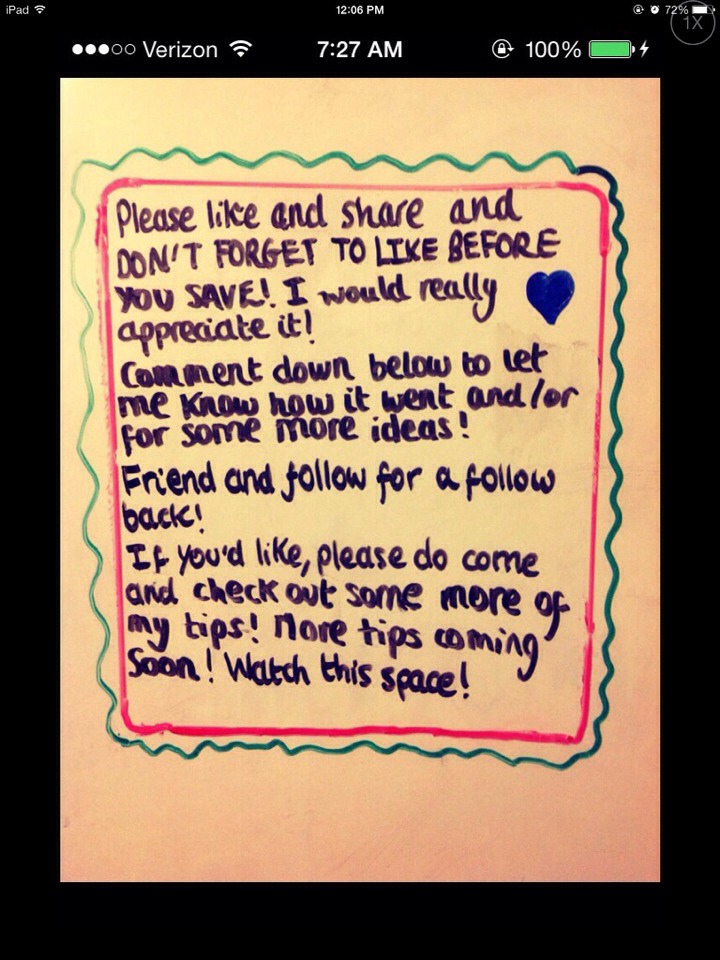 iPad 12:06 PM 72%
1X
Verizon 7:27 AM 100%
Please like and share and
DON'T FORGET TO LIKE BEFORE
YOU SAVE! I would really
appreciate it!
Comment down below to let
me know how it went and/or
for some more ideas!
Friend and follow for a follow
back!
If you'd like, please do come
and check out some more of
my tips! More tips coming
Soon! Watch this space!